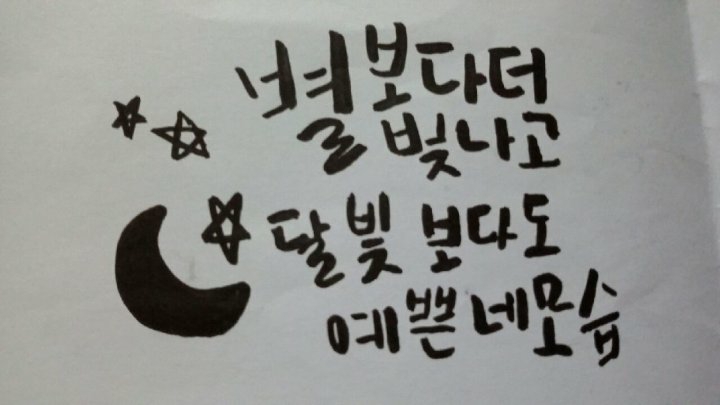 별보다더
빛나고
달빛 보다도
예쁜네모습